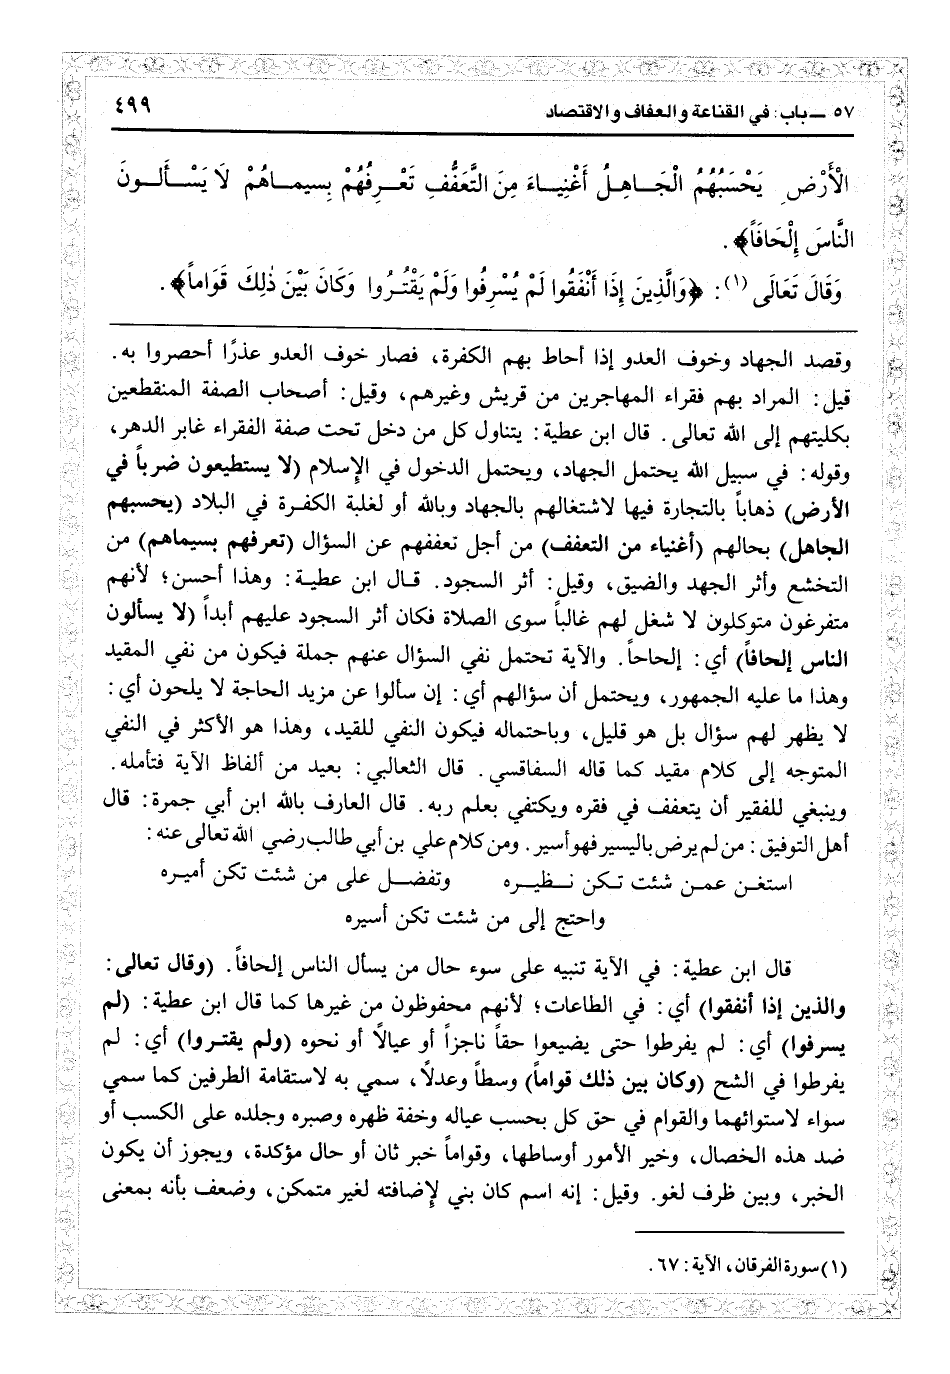 ٥٧ ـ باب: في القناعة والعفاف والاقتصاد ٤٩٩
الْأَرْضِ يَحْسَبُهُمُ الْجَـاهِلُ أَغْنِيـاءَ مِنَ التَّعَفُّفِ تَعْـرِفُهُمْ بِسِيمـاهُمْ لَا يَسْـأَلـونَ
النَّاسَ إِلْحَافَاً﴾ .
وَقَالَ تَعَالَى (١): ﴿وَالَّذِينَ إِذَا أَنْفَقُوا لَمْ يُسْرِفُوا وَلَمْ يَقْتُـرُوا وَكَانَ بَيْنَ ذٰلِكَ قَوَاماً﴾ .
وقصد الجهاد وخوف العدو إذا أحاط بهم الكفرة، فصار خوف العدو عذرًا أحصروا به.
قيل: المراد بهم فقراء المهاجرين من قريش وغيرهم، وقيل: أصحاب الصفة المنقطعين
بكليتهم إلى الله تعالى. قال ابن عطية: يتناول كل من دخل تحت صفة الفقراء غابر الدهر،
وقوله: في سبيل الله يحتمل الجهاد، ويحتمل الدخول في الإسلام (لا يستطيعون ضرباً في
الأرض) ذهاباً بالتجارة فيها لاشتغالهم بالجهاد وبالله أو لغلبة الكفرة في البلاد (يحسبهم
الجاهل) بحالهم (أغنياء من التعفف) من أجل تعففهم عن السؤال (تعرفهم بسيماهم) من
التخشع وأثر الجهد والضيق، وقيل: أثر السجود. قـال ابن عطيـة: وهذا أحسن؛ لأنهم
متفرغون متوكلون لا شغل لهم غالباً سوى الصلاة فكان أثر السجود عليهم أبداً (لا يسألون
الناس إلحافاً) أي: إلحاحاً. والآية تحتمل نفي السؤال عنهم جملة فيكون من نفي المقيد
وهذا ما عليه الجمهور، ويحتمل أن سؤالهم أي: إن سألوا عن مزيد الحاجة لا يلحون أي:
لا يظهر لهم سؤال بل هو قليل، وباحتماله فيكون النفي للقيد، وهذا هو الأكثر في النفي
المتوجه إلى كلام مقيد كما قاله السفاقسي. قال الثعالبي: بعيد من ألفاظ الآية فتأمله.
وينبغي للفقير أن يتعفف في فقره ويكتفي بعلم ربه. قال العارف بالله ابن أبي جمرة: قال
أهل التوفيق: من لم يرض باليسير فهو أسير. ومن كلام علي بن أبي طالب رضي الله تعالى عنه:
استغـن عمـن شئت تـكن نـظيـره وتفضـل على من شئت تكن أميره
واحتج إلى من شئت تكن أسيره
قال ابن عطية: في الآية تنبيه على سوء حال من يسأل الناس إلحافاً. (وقال تعالى:
والذين إذا أنفقوا) أي: في الطاعات؛ لأنهم محفوظون من غيرها كما قال ابن عطية: (لم
يسرفوا) أي: لم يفرطوا حتى يضيعوا حقاً ناجزاً أو عيالاً أو نحوه (ولم يقتـروا) أي: لم
يفرطوا في الشح (وكان بين ذلك قواماً) وسطاً وعدلاً، سمي به لاستقامة الطرفين كما سمي
سواء لاستوائهما والقوام في حق كل بحسب عياله وخفة ظهره وصبره وجلده على الكسب أو
ضد هذه الخصال، وخير الأمور أوساطها، وقواماً خبر ثان أو حال مؤكدة، ويجوز أن يكون
الخبر، وبين ظرف لغو. وقيل: إنه اسم كان بني لإضافته لغير متمكن، وضعف بأنه بمعنى
(١) سورة الفرقان، الآية: ٦٧.